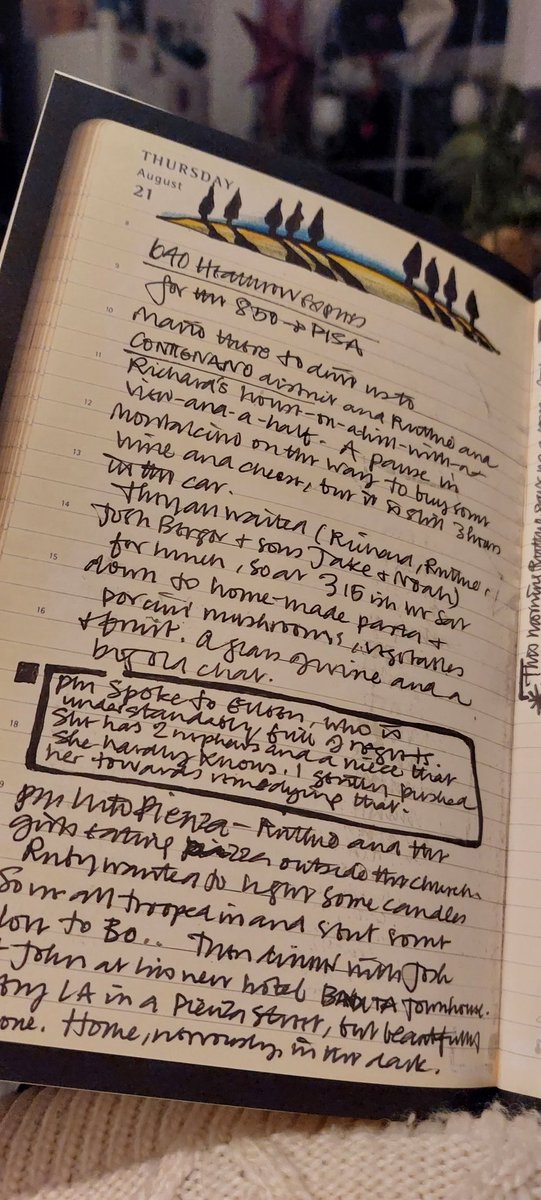 THURSDAY
August
21
8
640 Heathrow express
9
for the 850 → PISA
10
Mario there to drive us to
11
CONTIGNANO district and Ruthie and
Richard's house-on-a-hill-with-a-
view-and-a-half. A pause in
12
Montalcino on the way to buy some
wine and cheese, but it is still 3 hours
13
in the car.
They all waited (Richard, Ruthie,
14
Josh Berger + sons Jake + Noah)
for lunch, so at 315 ish we sat
15
down to home-made pasta +
porcini mushrooms, vegetables
16
+ fruit. A glass of wine and a
big old chat.
pm Spoke to Eileen, who is
understandably full of regrets.
18
She has 2 nephews and a niece that
she hardly knows. I gently pushed
her towards remedying that.
9
pm Into Pienza – Ruthie and the
girls eating pizza outside the church.
Ruby wanted to light some candles
So we all trooped in and sent some
love to Bo.. Then dinner with Josh
+ John at his new hotel Townhouse.
LA in a Pienza street, but beautifully
one. Home, nervously, in the dark.